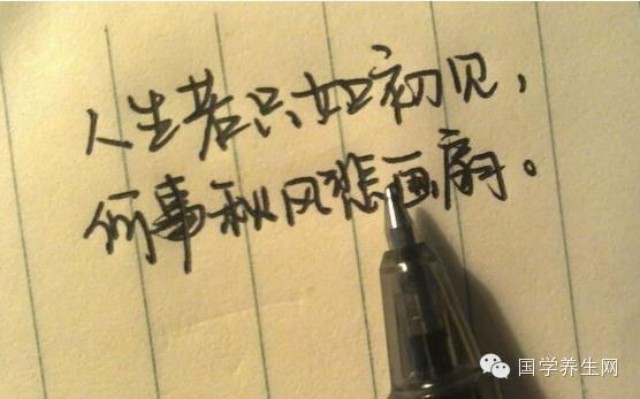 人生若只如初见，
何事秋风悲画扇。
国学养生网